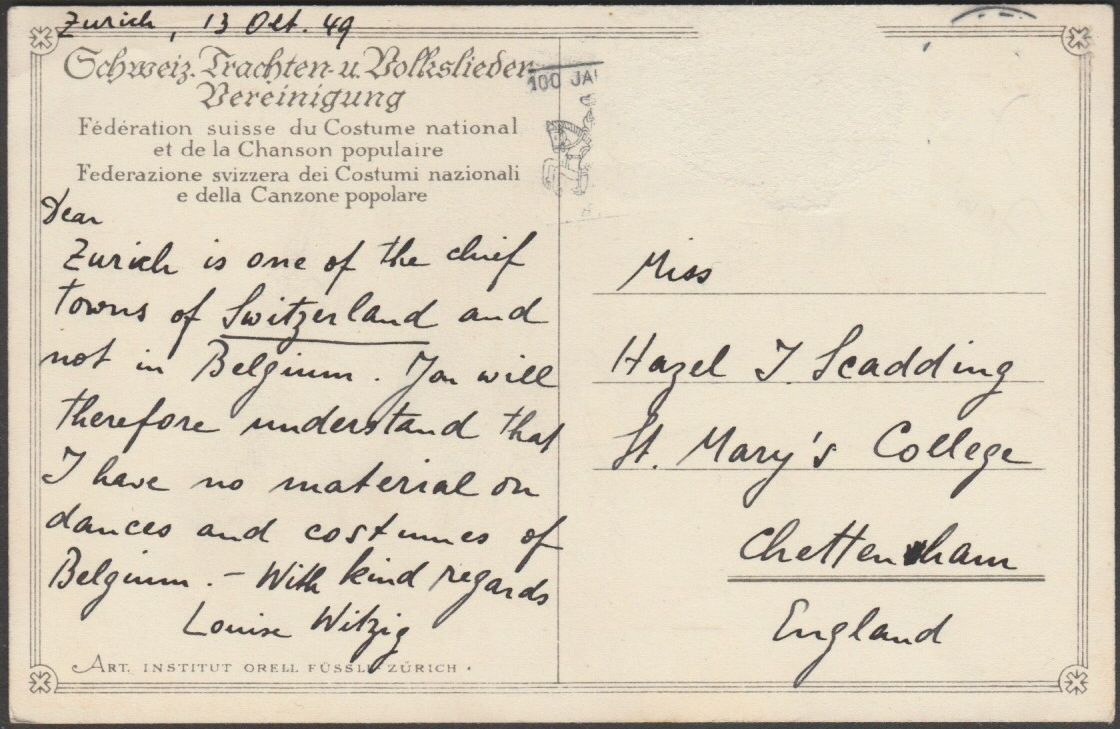 Zurich, 13 Okt. 49
Schweiz. Trachten- u. Volkslieder-
Vereinigung
Fédération suisse du Costume national
et de la Chanson populaire
Federazione svizzera dei Costumi nazionali
e della Canzone popolare
Dear
Zurich is one of the chief
towns of Switzerland and
not in Belgium. You will
therefore understand that
I have no material on
dances and costumes of
Belgium. – With kind regards
Louise Witzig
ART. INSTITUT ORELL FÜSSLI ZÜRICH •
100 JA
Miss
Hazel J Scadding
St. Mary's College
Chettenham
England